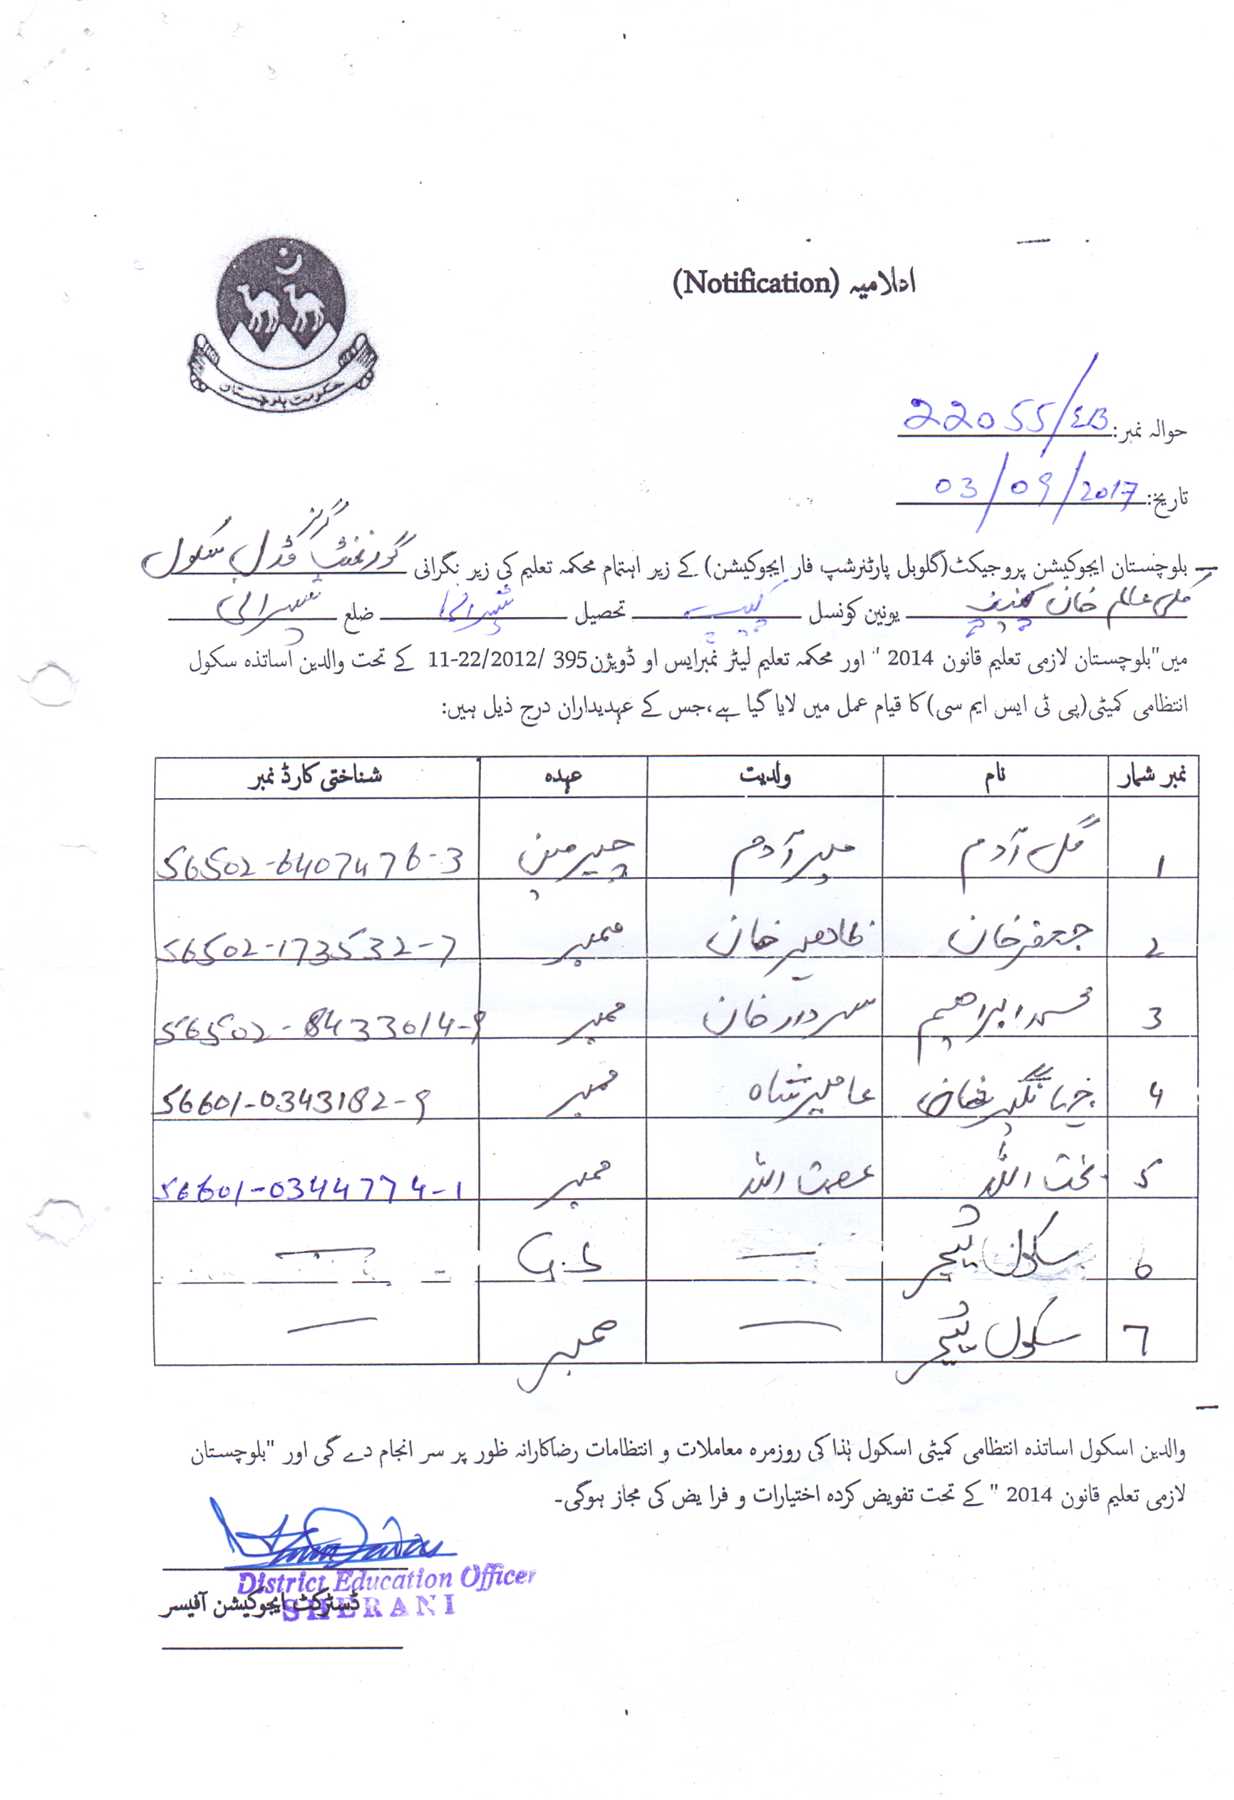 ادلامیہ (Notification)
حکومت بلوچستان
حوالہ نمبر: 22055/EB
تاریخ: 03/09/2017
بلوچستان ایجوکیشن پروجیکٹ(گلوبل پارٹنرشپ فار ایجوکیشن) کے زیر اہتمام محکمہ تعلیم کی زیر نگرانی گورنمنٹ گرلز مڈل سکول
کلی عالم خان یونین کونسل تحصیل شیرانی ضلع شیرانی
میں"بلوچستان لازمی تعلیم قانون 2014 " اور محکمہ تعلیم لیٹر نمبرایس او ڈویژن395 /11-22/2012 کے تحت والدین اساتذہ سکول
انتظامی کمیٹی(پی ٹی ایس ایم سی)کا قیام عمل میں لایا گیا ہے،جس کے عہدیداران درج ذیل ہیں:
نمبر شمار نام ولدیت عہدہ شناختی کارڈ نمبر
1 گل آدم میر آدم چیرمین 56502-6407476-3
2 جعفر خان خان ممبر 56502-173532-7
3 محمد ابراھیم سردار خان ممبر 56502-8433014-9
4 ممبر 56601-0343182-9
5 بخت اللہ عصمت اللہ ممبر 56601-0344774-1
6 سکول ٹیچر — —
7 سکول ٹیچر — ممبر —
والدین اسکول اساتذہ انتظامی کمیٹی اسکول ہٰذا کی روزمرہ معاملات و انتظامات رضاکارانہ طور پر سر انجام دے گی اور "بلوچستان
لازمی تعلیم قانون 2014 " کے تحت تفویض کردہ اختیارات و فرا یض کی مجاز ہوگی۔
District Education Officer
SHERANI
ڈسٹرکٹ ایجوکیشن آفیسر